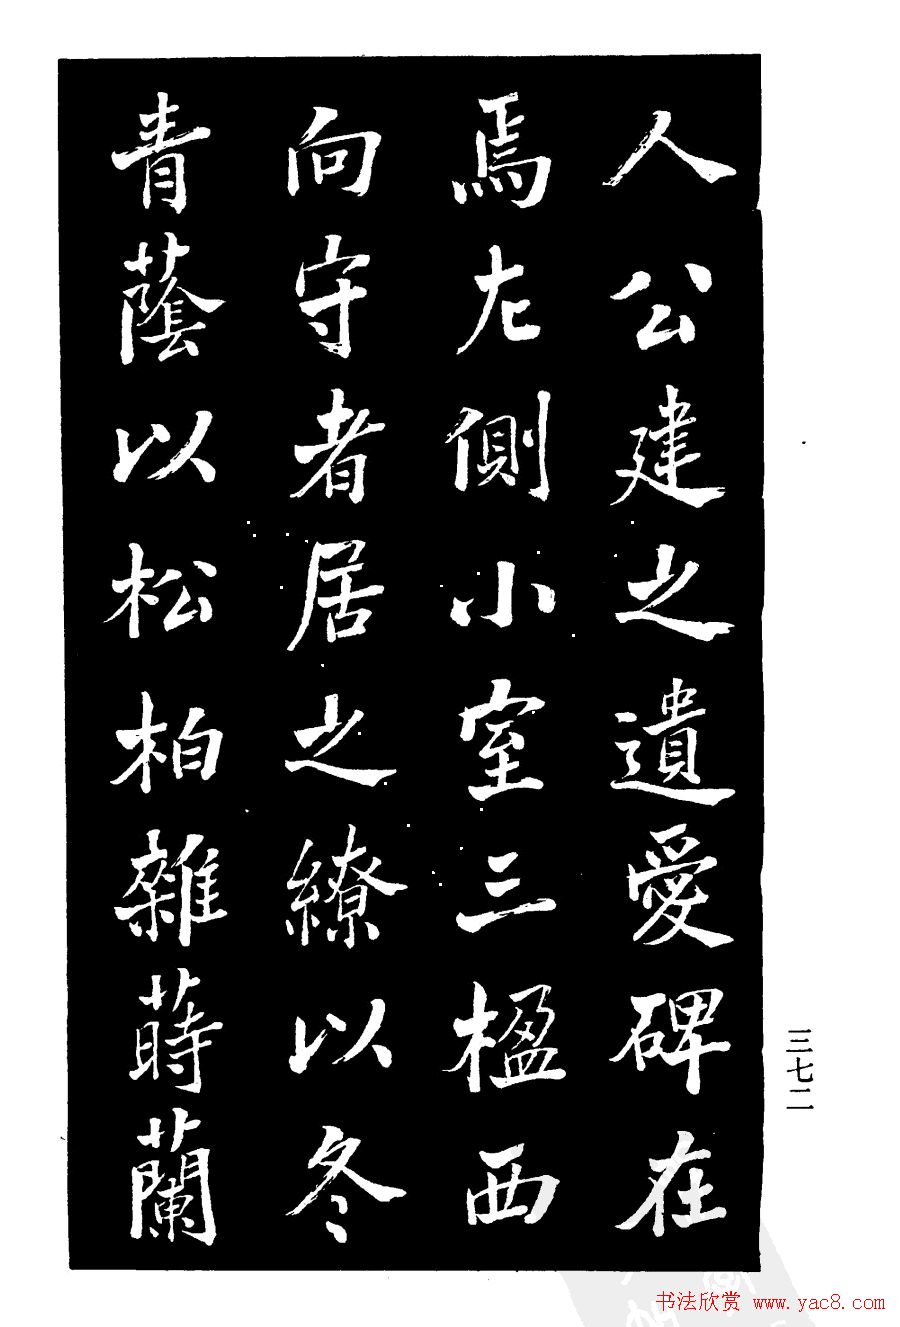 人公建之遺愛碑在
焉左側小室三楹西
向守者居之繚以冬
青蔭以松柏雜蒔蘭
三七二
书法欣赏 www.yac8.com